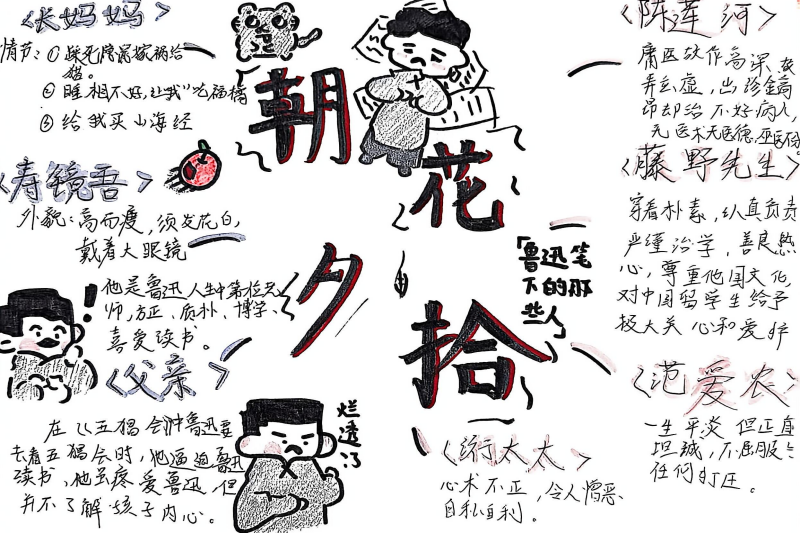 朝花夕拾
「鲁迅笔
下的那
些人」
《长妈妈》
情节:①踩死隐鼠嫁祸给
猫。
②睡相不好,让我"吃福橘
③给我买山海经
《寿镜吾》
外貌:高而瘦,须发花白,
戴着大眼镜
他是鲁迅人生中第一位
师,方正、质朴、博学、
喜爱读书。
《父亲》
在《五猖会》中鲁迅要
去看五猖会时,他逼迫鲁迅
读书,他虽疼爱鲁迅,但
并不了解孩子内心。
烂
透
了
《陈莲河》
庸医故作高深,故
弄玄虚,出诊金高
昂却治不好病人,
无医术无医德,巫医不分
《藤野先生》
穿着朴素,认真负责
严谨治学,善良热
心,尊重他国文化,
对中国留学生给予
极大关心和爱护
《范爱农》
一生平淡但正直
坦诚,不屈服
任何打压。
《衍太太》
心术不正,令人憎恶、
自私自利。